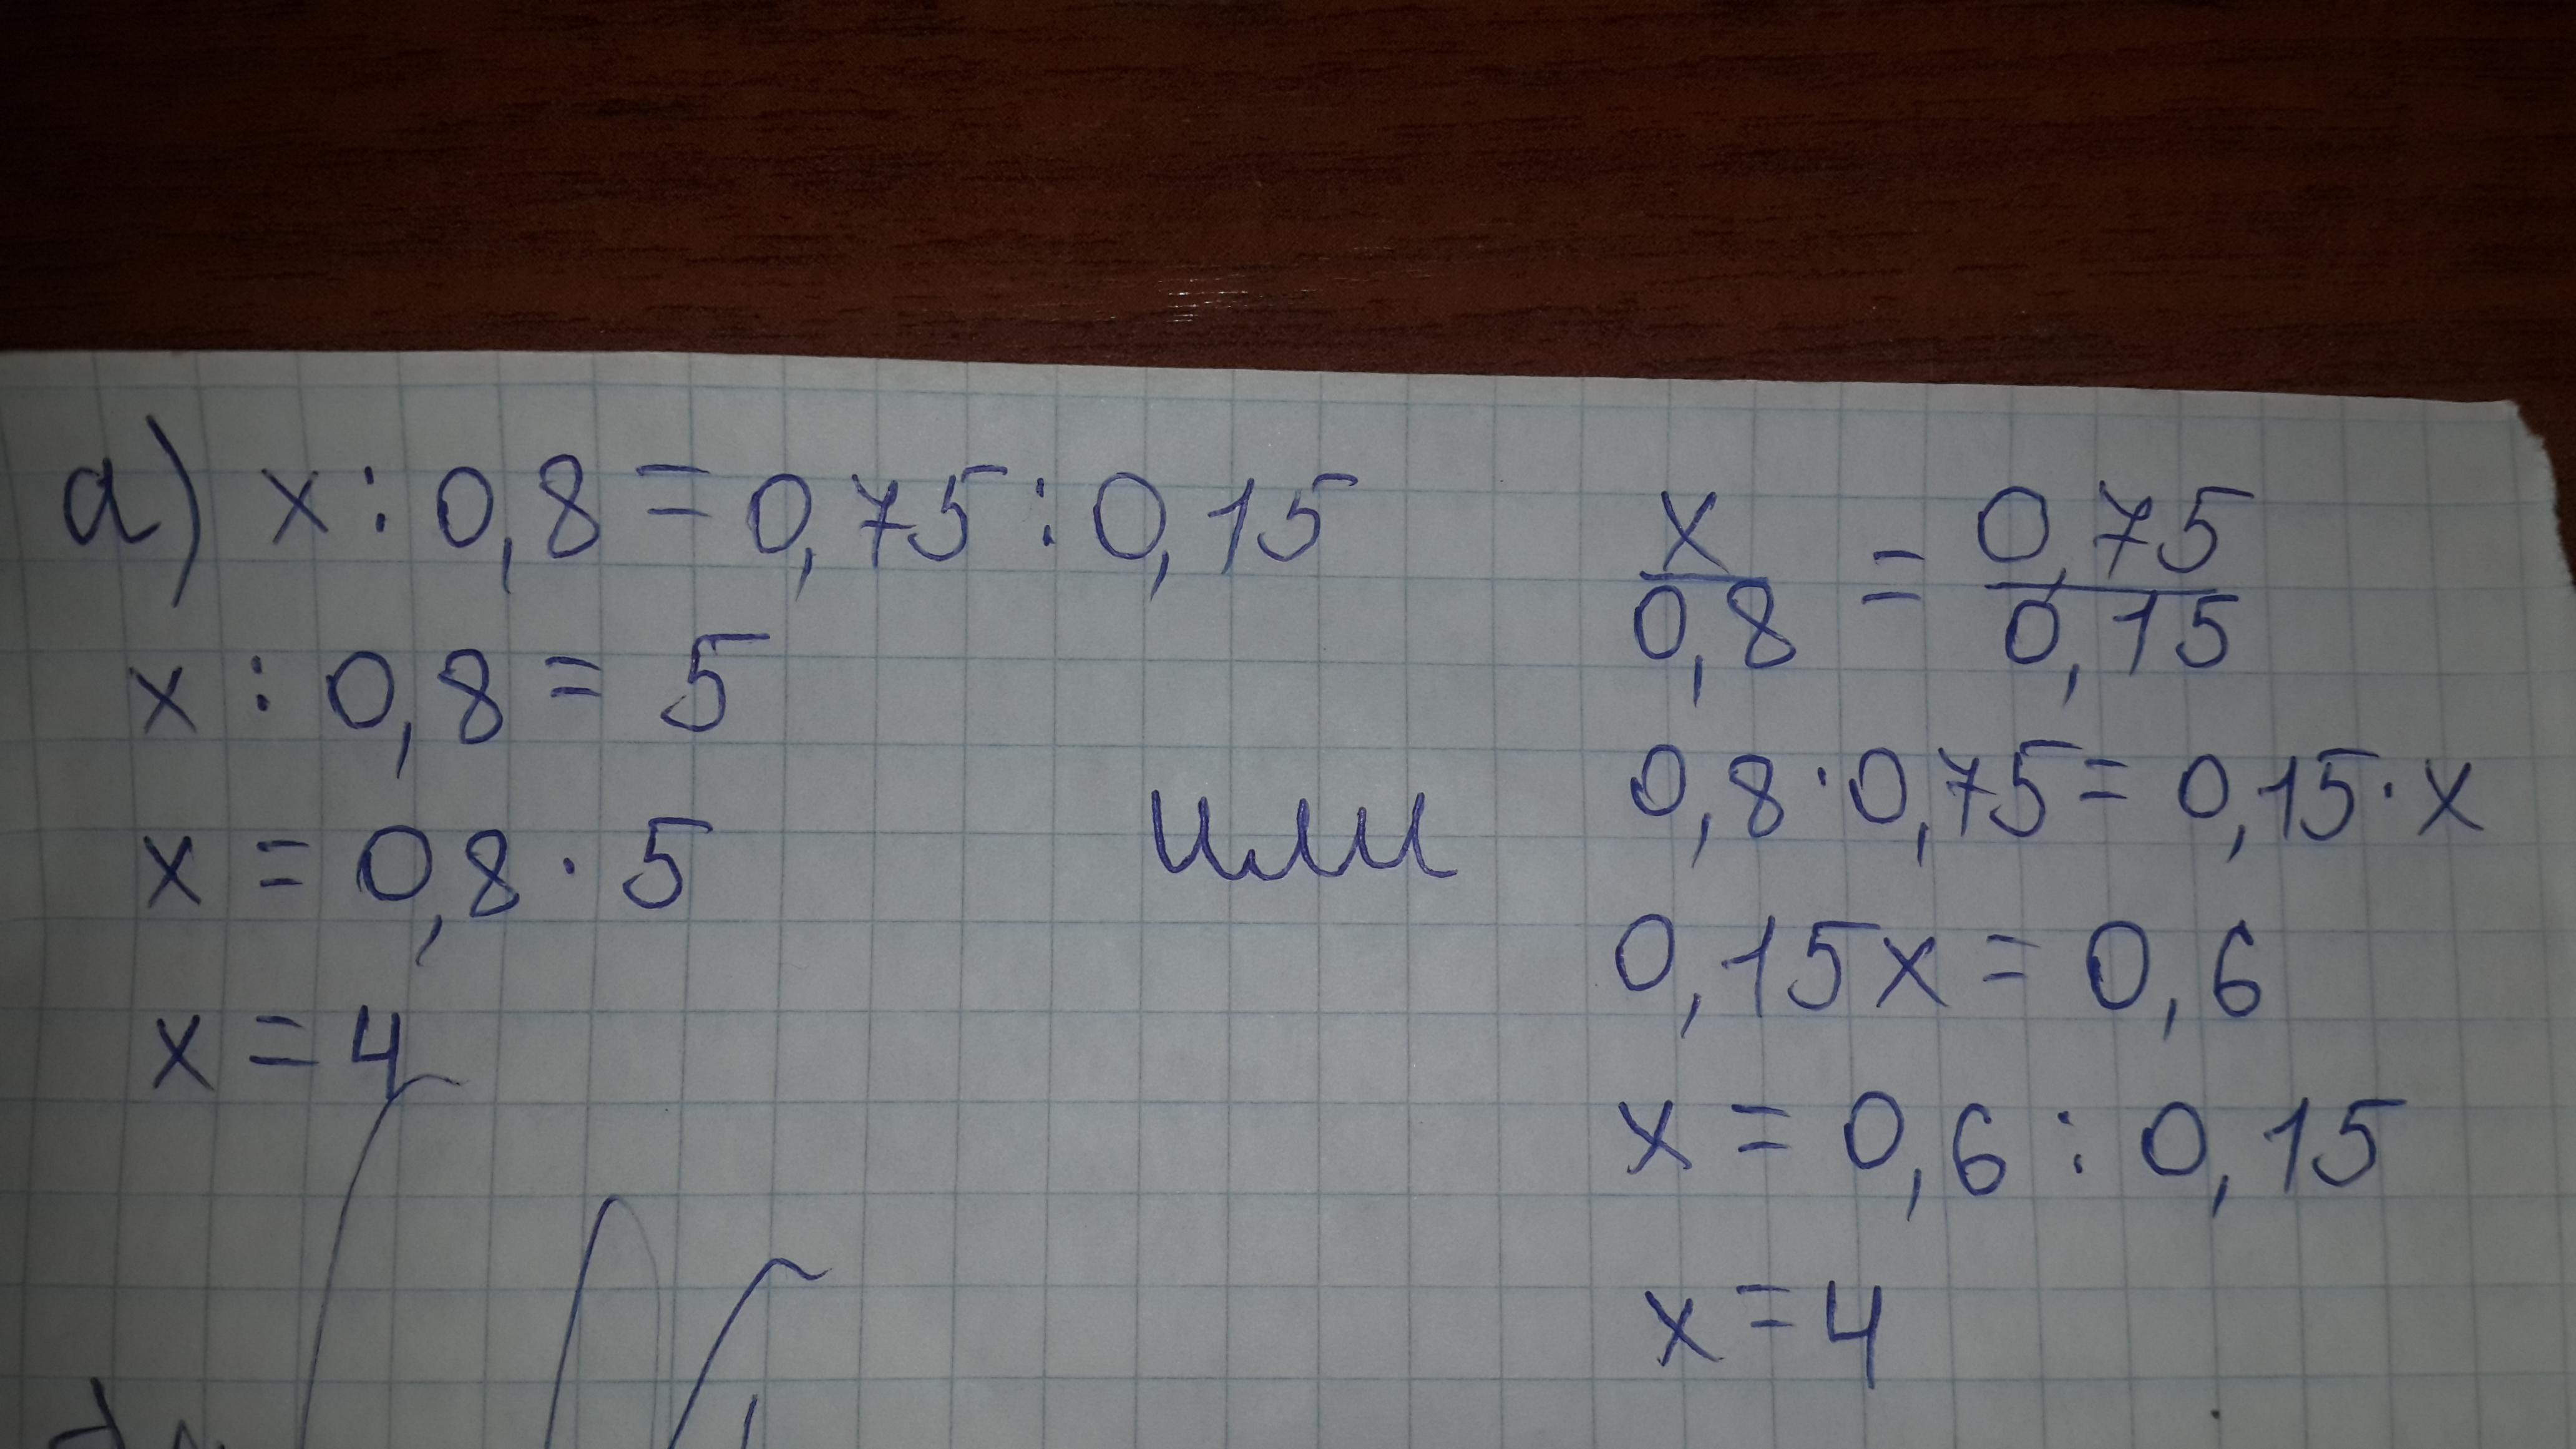 а) x : 0,8 = 0,75 : 0,15
x : 0,8 = 5
x = 0,8 · 5
x = 4
или
x/0,8 = 0,75/0,15
0,8 · 0,75 = 0,15 · x
0,15x = 0,6
x = 0,6 : 0,15
x = 4